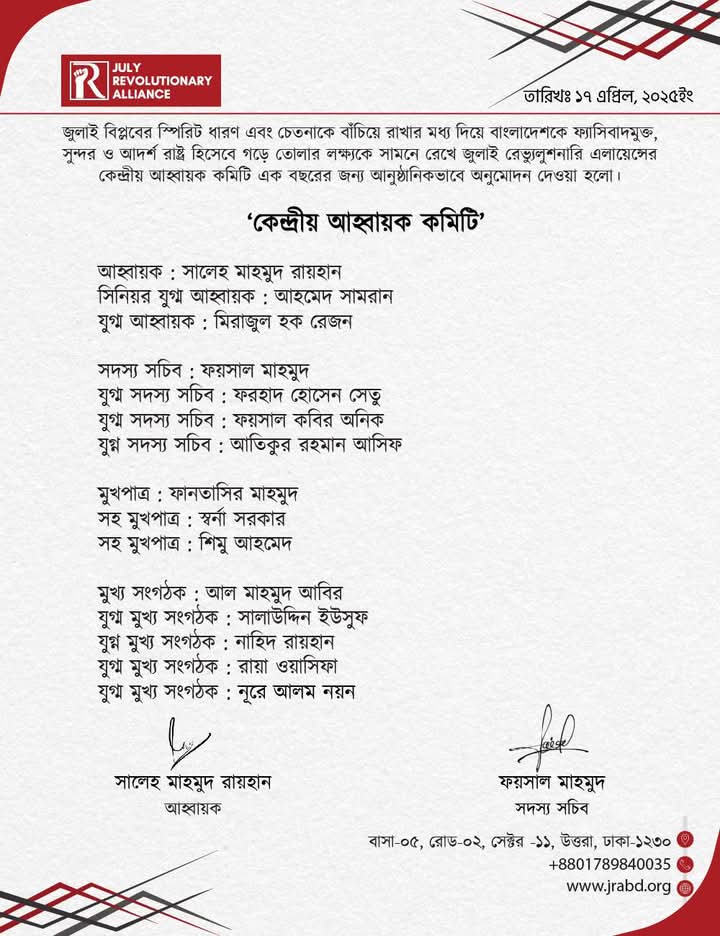 JULY
REVOLUTIONARY
ALLIANCE
তারিখঃ ১৭ এপ্রিল, ২০২৫ইং
জুলাই বিপ্লবের স্পিরিট ধারণ এবং চেতনাকে বাঁচিয়ে রাখার মধ্য দিয়ে বাংলাদেশকে ফ্যাসিবাদমুক্ত,
সুন্দর ও আদর্শ রাষ্ট্র হিসেবে গড়ে তোলার লক্ষ্যকে সামনে রেখে জুলাই রেভ্যুলুশনারি এলায়েন্সের
কেন্দ্রীয় আহ্বায়ক কমিটি এক বছরের জন্য আনুষ্ঠানিকভাবে অনুমোদন দেওয়া হলো।
‘কেন্দ্রীয় আহ্বায়ক কমিটি’
আহ্বায়ক : সালেহ মাহমুদ রায়হান
সিনিয়র যুগ্ম আহ্বায়ক : আহমেদ সামরান
যুগ্ম আহ্বায়ক : মিরাজুল হক রেজন
সদস্য সচিব : ফয়সাল মাহমুদ
যুগ্ম সদস্য সচিব : ফরহাদ হোসেন সেতু
যুগ্ম সদস্য সচিব : ফয়সাল কবির অনিক
যুগ্ন সদস্য সচিব : আতিকুর রহমান আসিফ
মুখপাত্র : ফানতাসির মাহমুদ
সহ মুখপাত্র : স্বর্না সরকার
সহ মুখপাত্র : শিমু আহমেদ
মুখ্য সংগঠক : আল মাহমুদ আবির
যুগ্ম মুখ্য সংগঠক : সালাউদ্দিন ইউসুফ
যুগ্ন মুখ্য সংগঠক : নাহিদ রায়হান
যুগ্ম মুখ্য সংগঠক : রায়া ওয়াসিফা
যুগ্ম মুখ্য সংগঠক : নূরে আলম নয়ন
সালেহ মাহমুদ রায়হান
আহ্বায়ক
ফয়সাল মাহমুদ
সদস্য সচিব
বাসা-০৫, রোড-০২, সেক্টর -১১, উত্তরা, ঢাকা-১২৩০
+8801789840035
www.jrabd.org